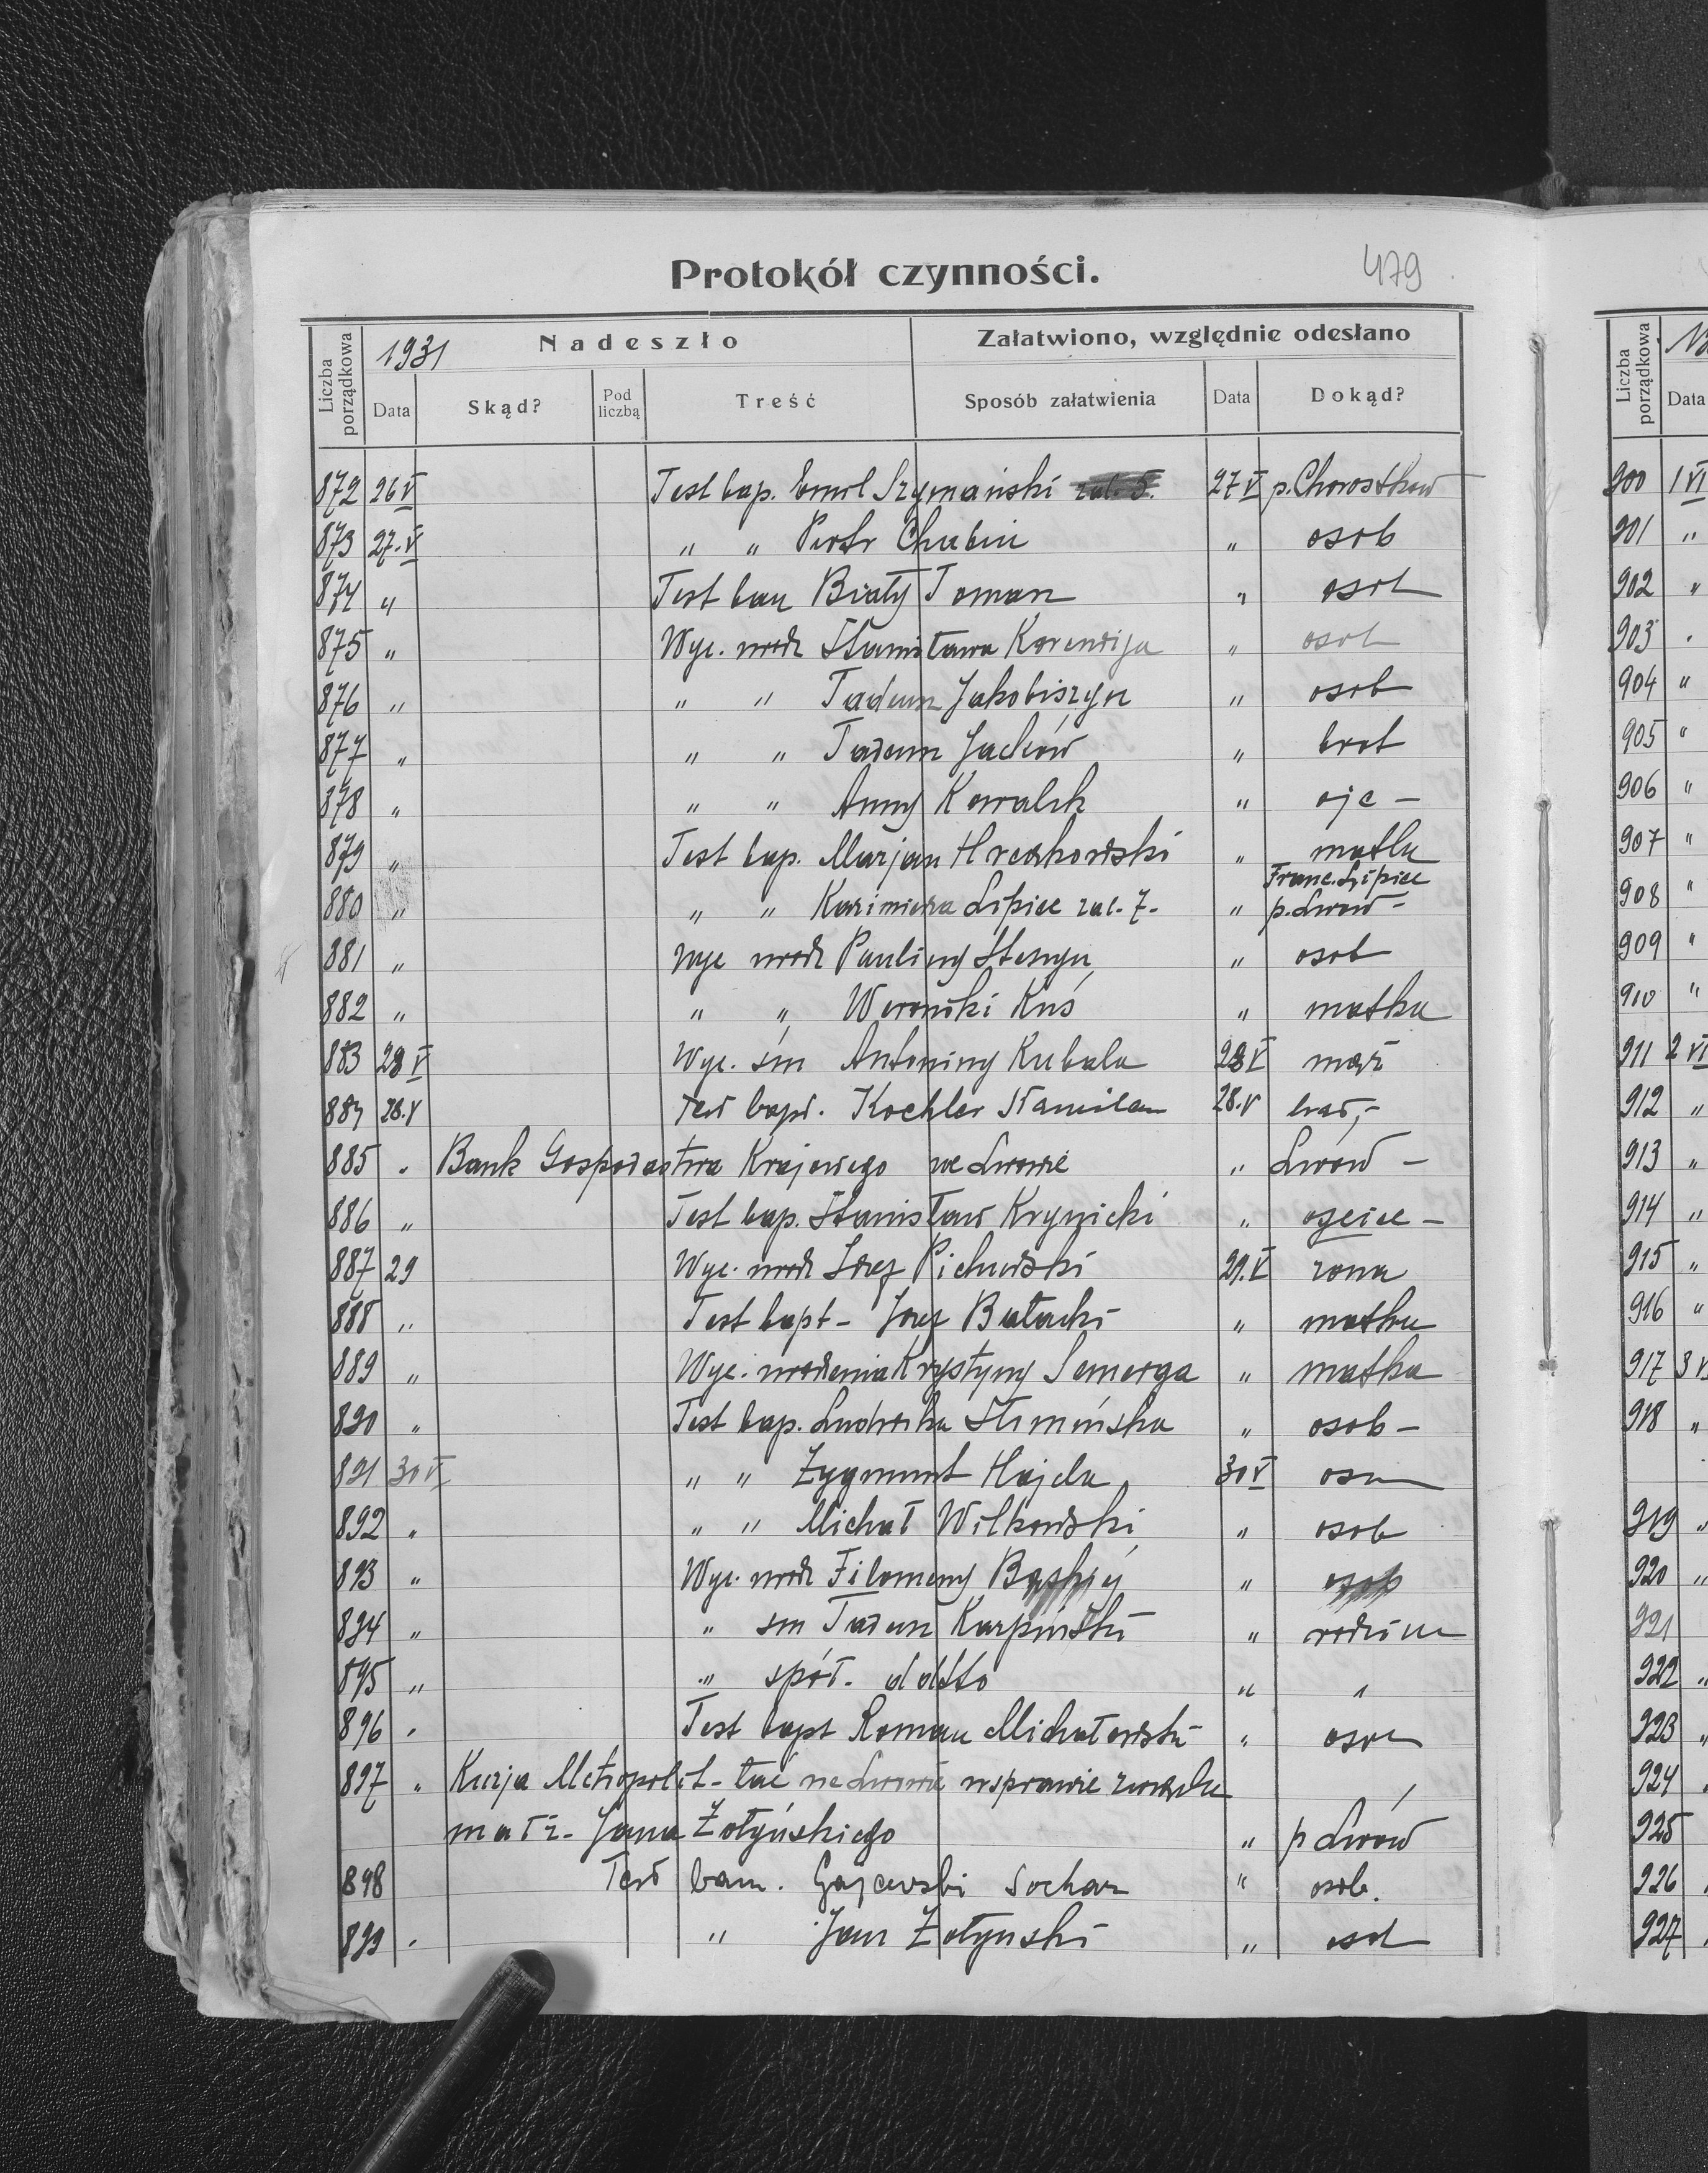 Protokół czynności. 479
Liczba porządkowa 1931 Nadeszło Załatwiono, względnie odesłano
Data Skąd? Pod liczbą Treść Sposób załatwienia Data Dokąd?
872 26 V Test bap. Emil Szymański 27 V p. Chorostków
873 27.V " " Piotr Chubin " osob
874 " Test bap Biały Roman " osob
875 " Wyc. urodz Stanisława " osob
876 " " " Tadeusz Jakobiszyn " osob
877 " " " Tadeusz Jackow " brat
878 " " " Anny Kowalik " ojc -
879 " Test bap. Marjan " matka
Franc. Lipiec
880 " " " Kazimierza Lipiec zał. 7- " p. Lwow -
881 " Wyc urodz Pauliny " osob
882 " " " Weroniki Kuś " matka
883 28 V Wyc. śm Antoniny Kubala 28 V mąż
884 28.V Test bapt. Kochler Stanisław 28.V brat,-
885 . Bank Gospodastwa Krajowego we Lwowie " Lwow -
886 " Test bap. Stanisław Krynicki " ojciec -
887 29 Wyc. urodz Józef Pichurski 29.V zona
888 " Test bapt - Jozef Bałucki " matka
889 " Wyc. urodzenia Krystyny Semerga " matka
890 " Test bap. Ludwika " osob -
891 30 V " " Zygmunt Hajda 30 V oso
892 " " " Michał Wilkowski " osob
893 " Wyc. urodz Filomeny " osob
894 " " śm Tadeusz Karpiński " rodzina
895 " " spół. ddtto " "
896 " Test bapt Roman Michałowski " osob
897 " Kurja Metropolit - łać we Lwowie wsprawie związku
małż - Jana Żołyńskiego " p Lwow
898 Test bam. Gajewski " osob.
899 . " Jan Żołynski " osob
Liczba porządkowa
Data
900 1 VI
901 "
902 "
903 .
904 "
905 "
906 "
907 "
908 "
909 "
910 "
911 2 VI
912 "
913 "
914 "
915 "
916 "
917 3 V
918 "
919 "
920 "
921
922 "
923 "
924
925
926
927